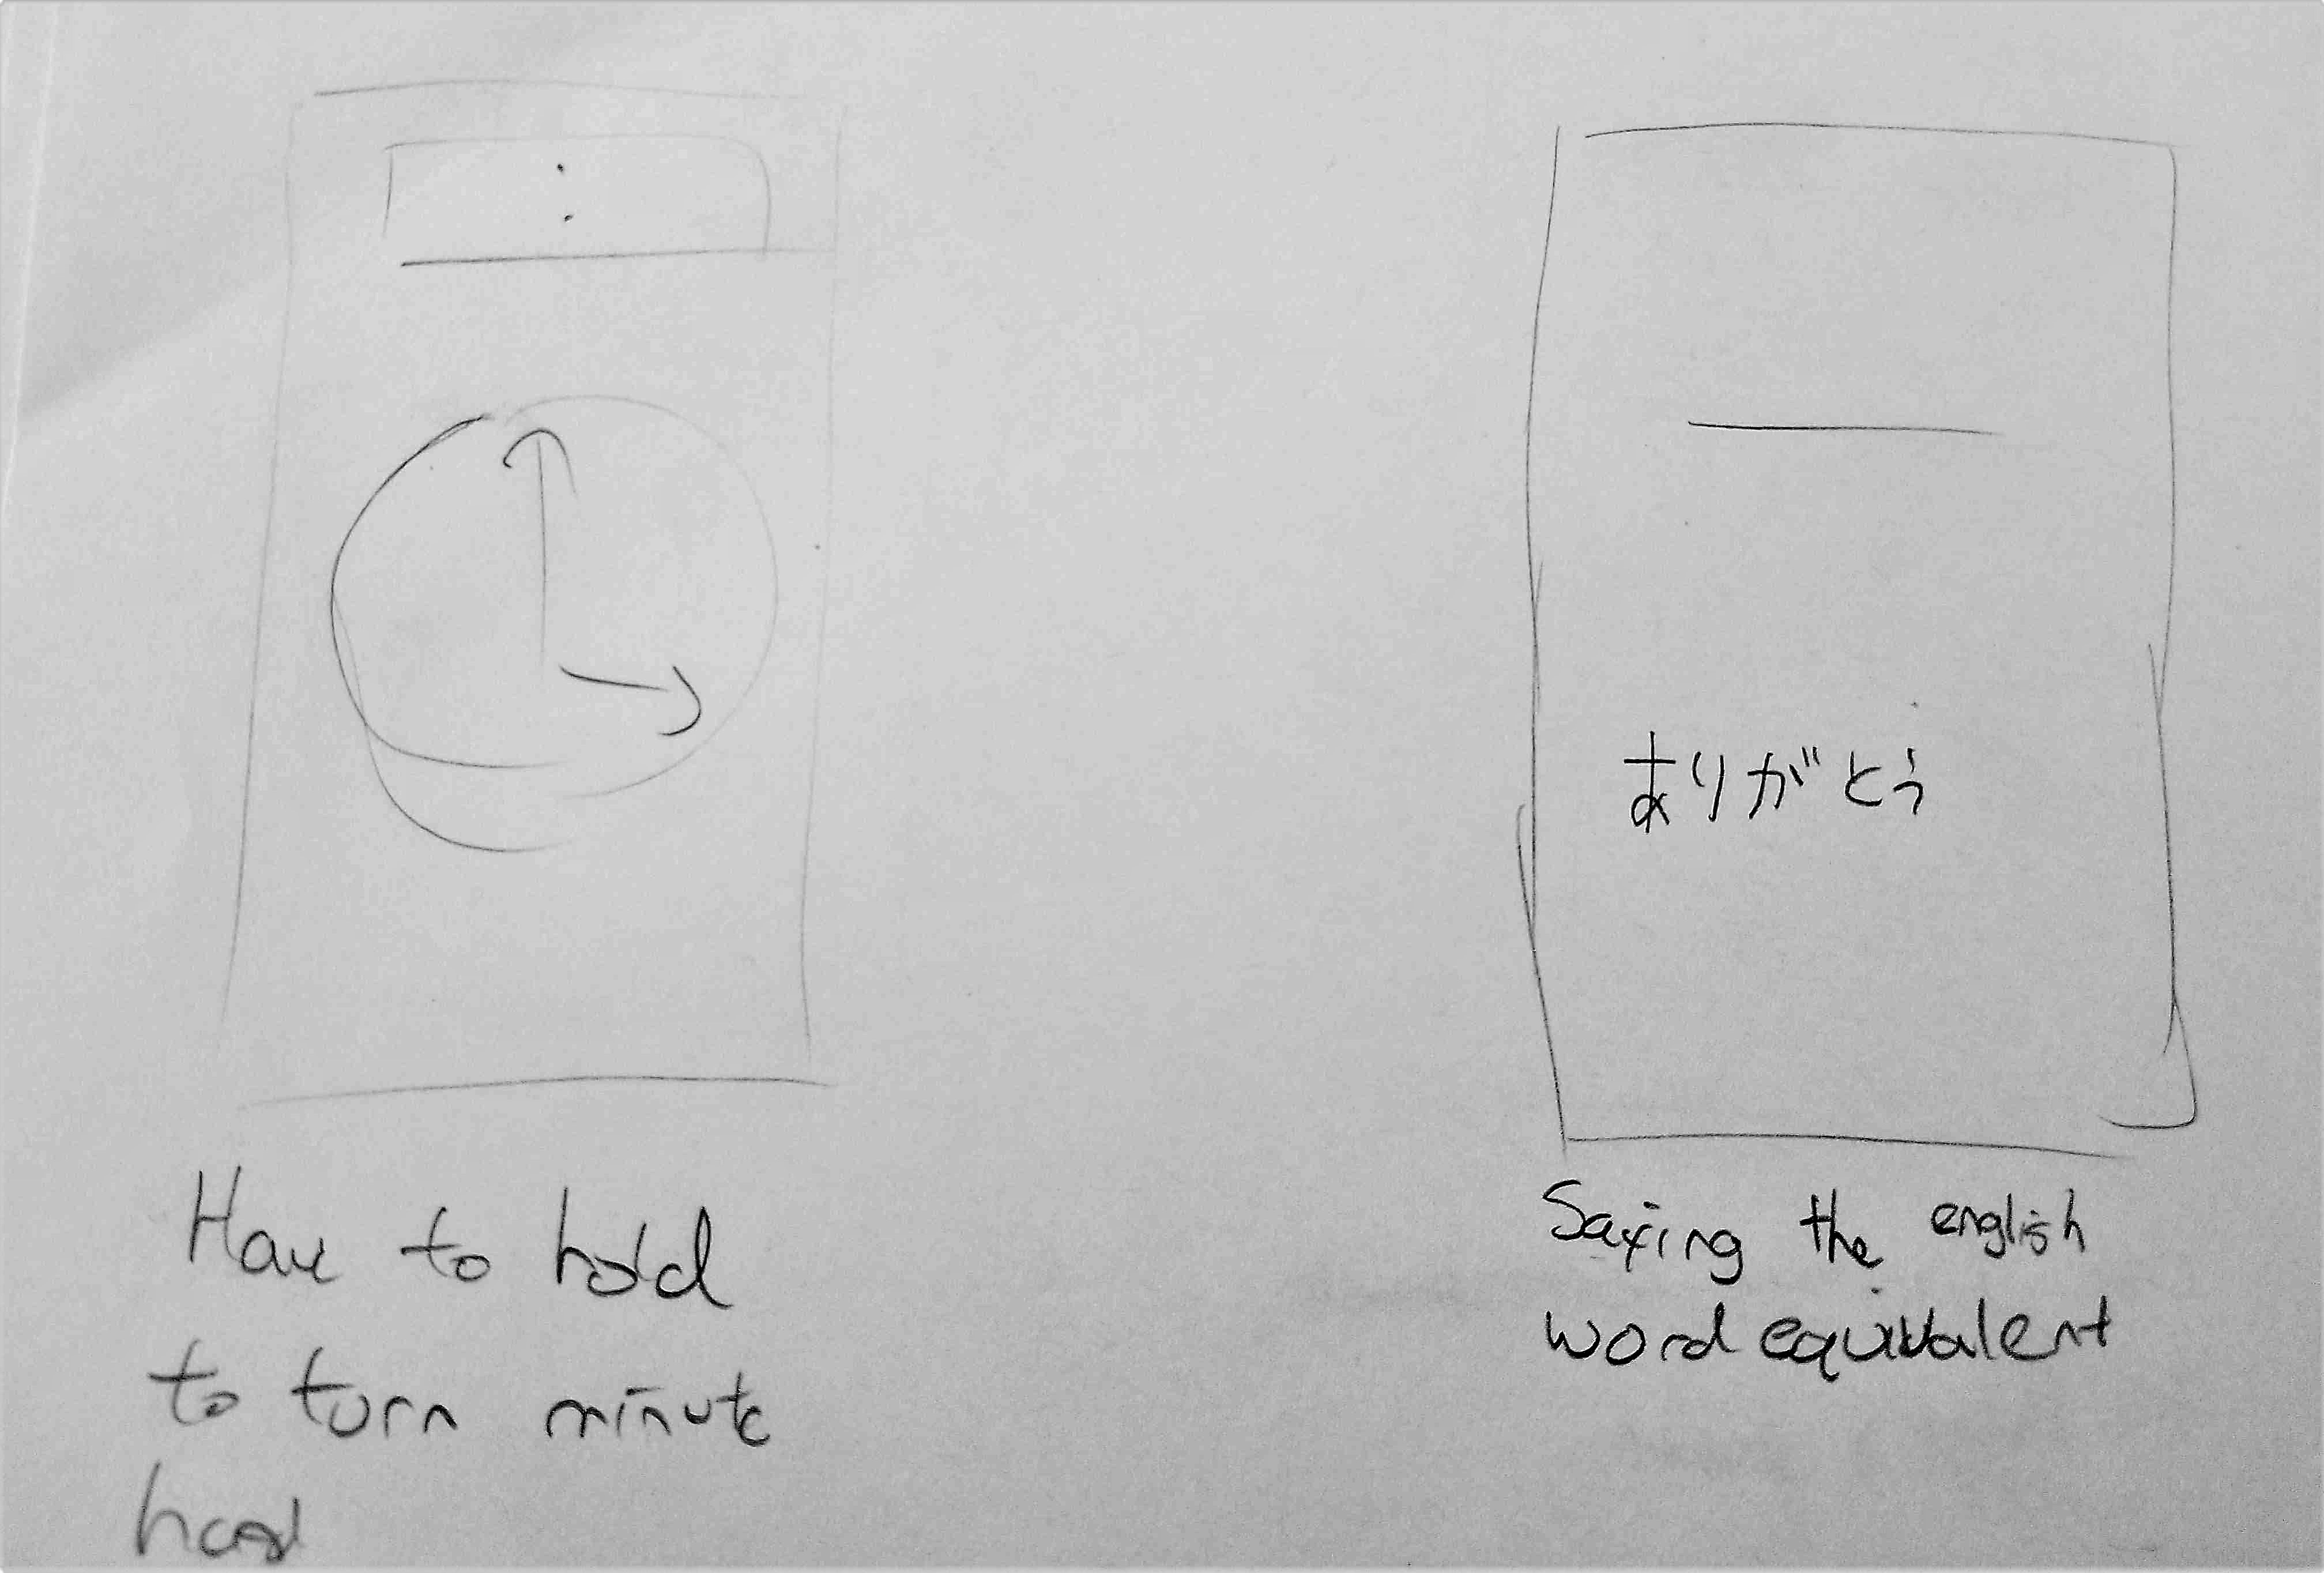 :
ありがとう
Have to hold
to turn minute
hand
Saying the english
word equivalent